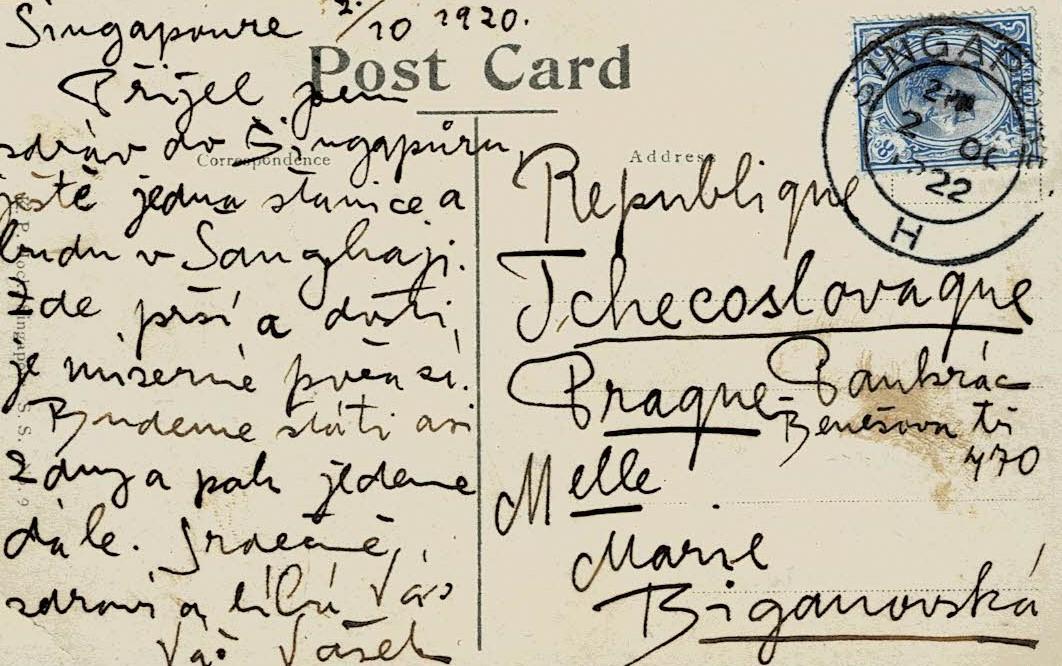 Singapoure 2./10 1920.
Post Card
Přijel jsem
zdráv do Singapúru,
Correspondence
ještě jedna stanice a
budu v Šanghaji.
Zde prší a dosti
je miserné počasí.
Budeme státi asi
2 dny a pak jedeme
dále. Srdečně
zdraví a líbá Vás
Váš Vašek
Address
Republique
Tchecoslovaque
Prague - Pankrác
Benešova tř
470
Melle
Marie
Biganovská
SINGAPORE
2 PM
2 OC
22
H